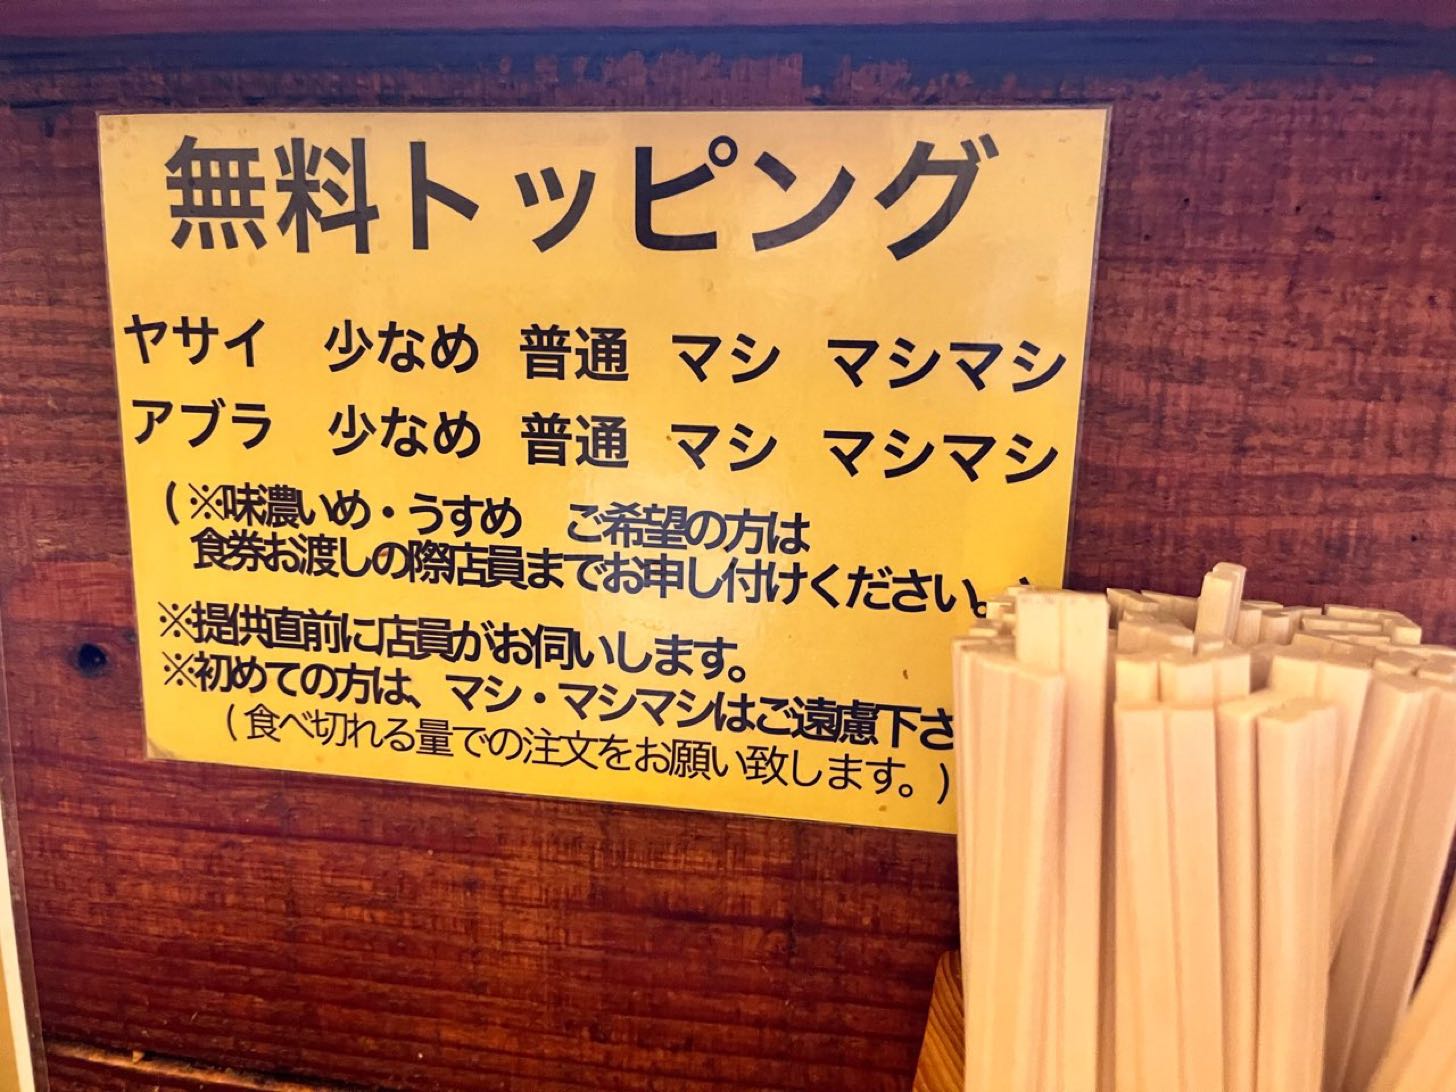 無料トッピング
ヤサイ 少なめ 普通 マシ マシマシ
アブラ 少なめ 普通 マシ マシマシ
(※味濃いめ・うすめ ご希望の方は
食券お渡しの際店員までお申し付けください。)
※提供直前に店員がお伺いします。
※初めての方は、マシ・マシマシはご遠慮下さ
(食べ切れる量での注文をお願い致します。)